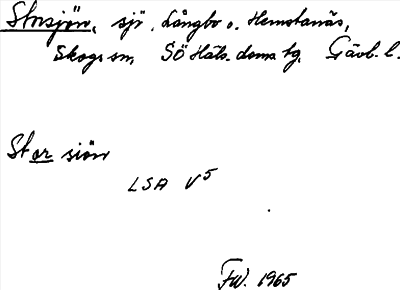 Storsjön, sjö, Långbo o. Hemstanäs,
Skogs sn, SÖ Häls. doms. tg. Gävb. l.
Stor sjön
LSA V5
FW. 1965